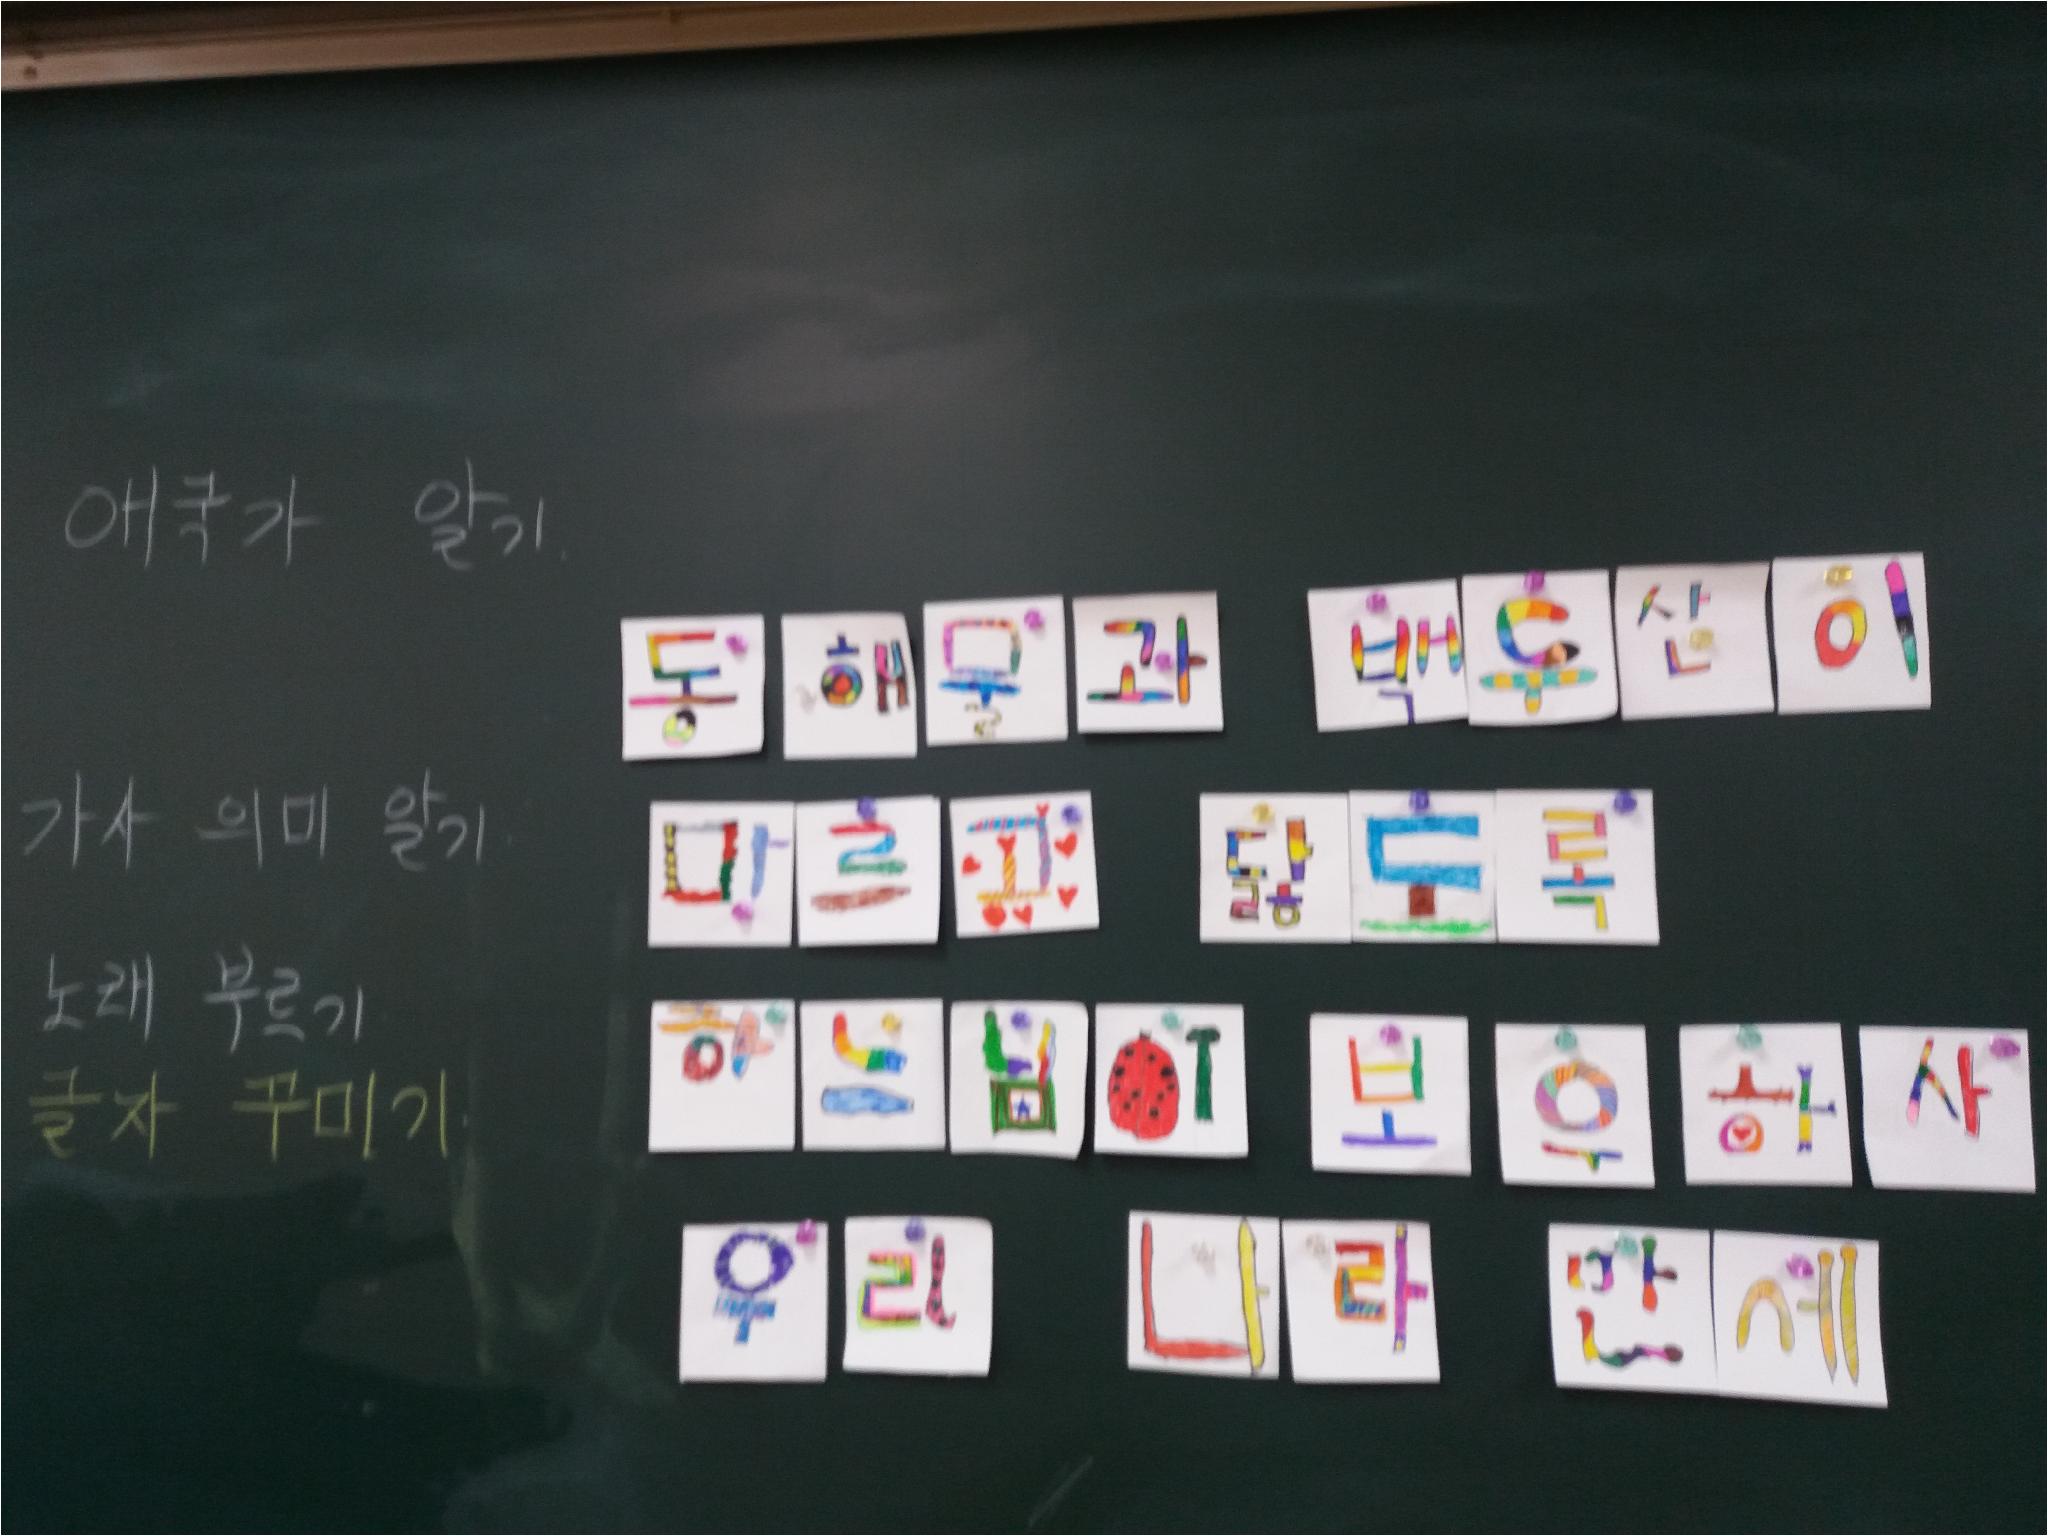 애국가 알기.
가사 의미 알기.
노래 부르기
글자 꾸미기.
동해물과 백두산이
마르고 닳도록
하느님이 보우하사
우리 나라 만세